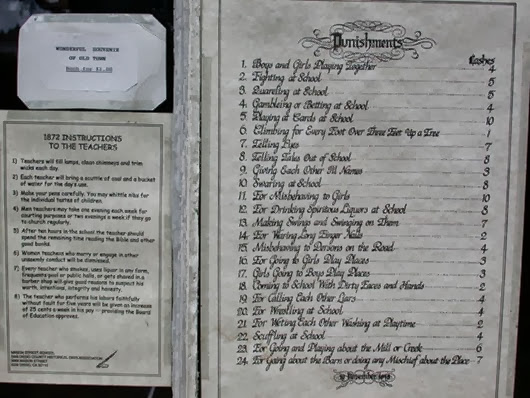 WONDERFUL SOUVENIR
OF OLD TOWN
Book for $1.00
1872 INSTRUCTIONS
TO THE TEACHERS
1) Teachers will fill lamps, clean chimneys and trim
wicks each day.
2) Each teacher will bring a scuttle of coal and a bucket
of water for the day's use.
3) Make your pens carefully. You may whittle nibs for
the individual tastes of children.
4) Men teachers may take one evening each week for
courting purposes or two evenings a week if they go
to church regularly.
5) After ten hours in the school the teacher should
spend the remaining time reading the Bible and other
good books.
6) Women teachers who marry or engage in other
unseemly conduct will be dismissed.
7) Every teacher who smokes, uses liquor in any form,
frequents pool or public halls, or gets shaved in a
barber shop will give good reasons to suspect his
worth, intentions, integrity and honesty.
8) The teacher who performs his labors faithfully
without fault for five years will be given an increase
of 25 cents a week in his pay — providing the Board
of Education approves.
MASON STREET SCHOOL
SAN DIEGO COUNTY HISTORICAL DAYS ASSOCIATION
MASON STREET
SAN DIEGO, CA
Punishments
Lashes
1. Boys and Girls Playing Together 4
2. Fighting at School 5
3. Quareling at School 5
4. Gambeling or Betting at School 4
5. Playing at Cards at School 10
6. Climbing for Every Foot Over Three Feet Up a Tree 1
7. Telling Lyes 7
8. Telling Tales Out of School 8
9. Giving Each Other Ill Names 3
10. Swaring at School 8
11. For Misbehaving to Girls 10
12. For Drinking Spiritous Liquors at School 8
13. Making Swings and Swinging on Them 7
14. For Waring Long Finger Nails 2
15. Misbehaving to Persons on the Road 4
16. For Going to Girls Play Places 3
17. Girls Going to Boys Play Places 3
18. Coming to School With Dirty Faces and Hands 2
19. For Calling Each Other Liars 4
20. For Wrestling at School 4
21. For Weting Each Other Washing at Playtime 2
22. Scuffling at School 4
23. For Going and Playing about the Mill or Creek 6
24. For Going about the Barn or doing any Mischief about the Place 7
November